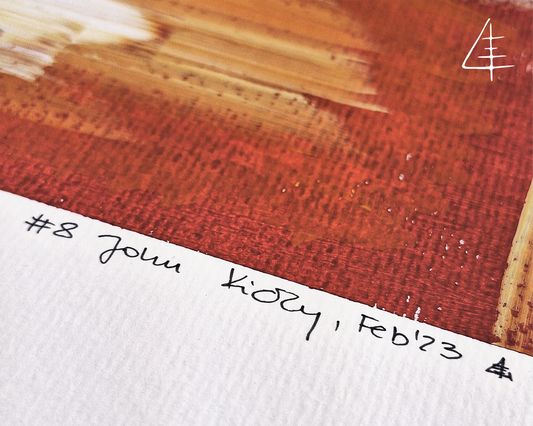 #8 John Kiозy, Feb'23